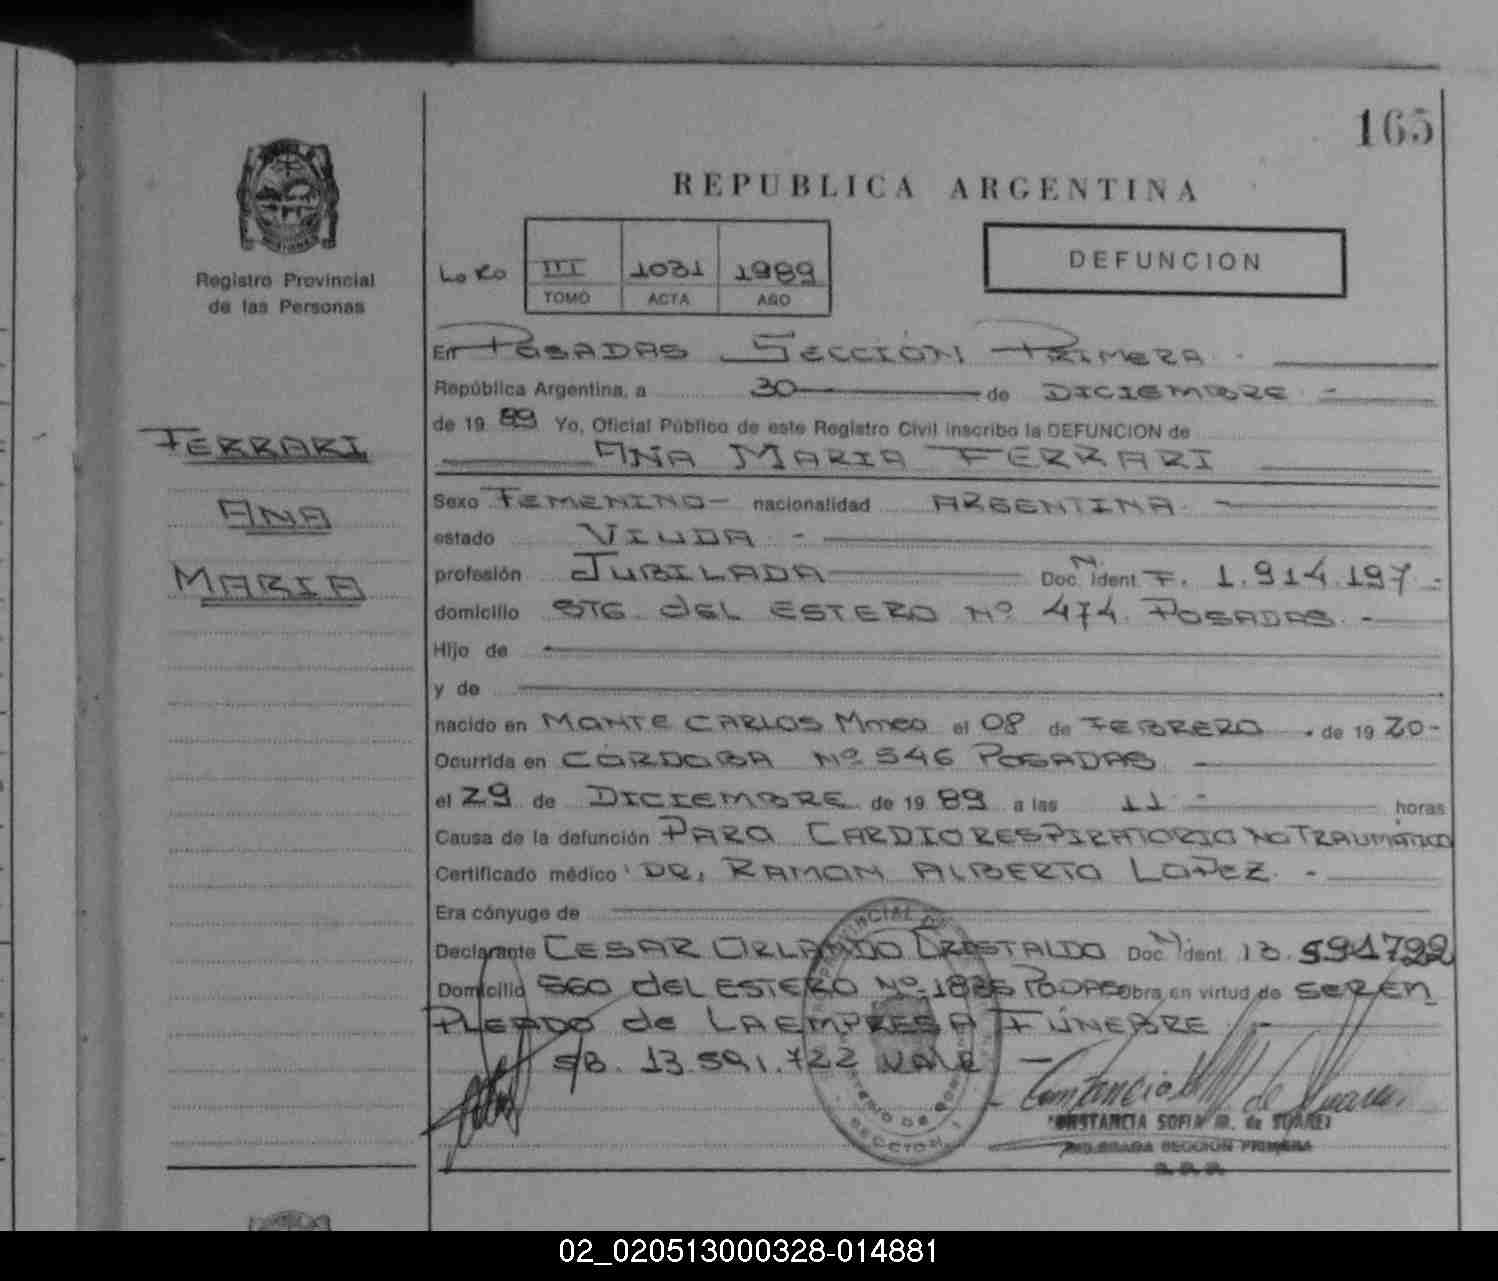 165
REPUBLICA ARGENTINA
Registro Provincial
de las Personas
III 1031 1989
TOMO ACTA AÑO
DEFUNCION
FERRARI
ANA
MARIA
En POSADAS SECCIÓN PRIMERA.
República Argentina, a 30 de DICIEMBRE -
de 19 89 Yo, Oficial Público de este Registro Civil inscribo la DEFUNCION de
ANA MARIA FERRARI
Sexo FEMENINO - nacionalidad ARGENTINA. -
estado VIUDA -
profesión JUBILADA Doc. N. ident. F. 1.914.197 -
domicilio STG. del ESTERO Nº 474. POSADAS. -
Hijo de
y de
nacido en MONTE CARLOS Mnes el 08 de FEBRERO . de 19 20 -
Ocurrida en CÓRDOBA Nº 546 POSADAS -
el 29 de DICIEMBRE de 19 89 a las 11 - horas
Causa de la defunción PARO CARDIORESPIRATORIO NO TRAUMÁTICO
Certificado médico DR. RAMON ALBERTO LOPEZ. -
Era cónyuge de
Declarante CESAR ORLANDO Doc. N ident. 13.591722
Domicilio SGO del ESTERO Nº 1825 PDAS Obra en virtud de SER EM
PLEADO de LA EMPRESA FÚNEBRE -
S/B. 13.591.722 VALE -
CONSTANCIA SOFIA M. de SUAREZ
DELEGADA SECCION PRIMERA
02_020513000328-014881